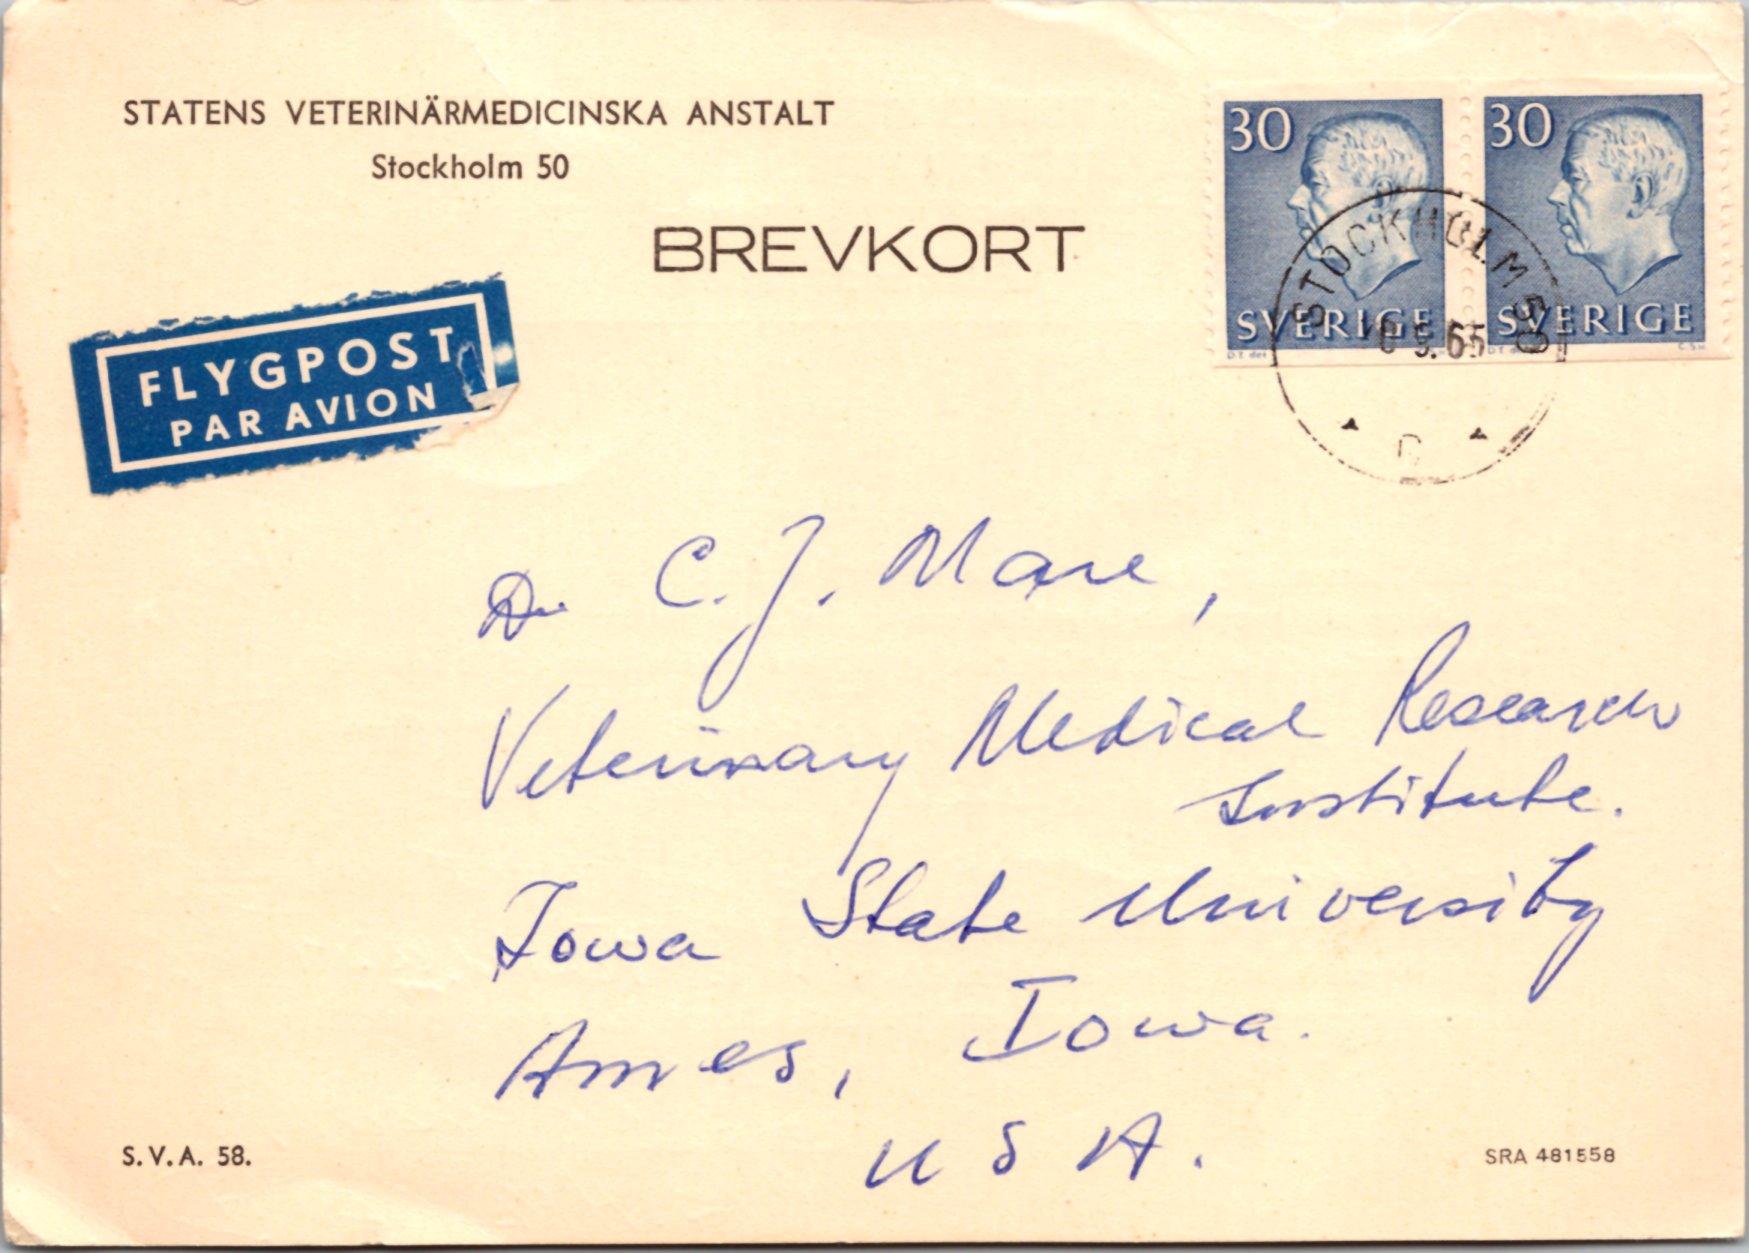 STATENS VETERINÄRMEDICINSKA ANSTALT
Stockholm 50
BREVKORT
FLYGPOST
PAR AVION
30
30
SVERIGE
SVERIGE
STOCKHOLM 50
5.65
Dr C. J. Mare,
Veterinary Medical Research
Institute.
Iowa State University
Ames, Iowa.
USA.
S.V.A. 58.
SRA 481558